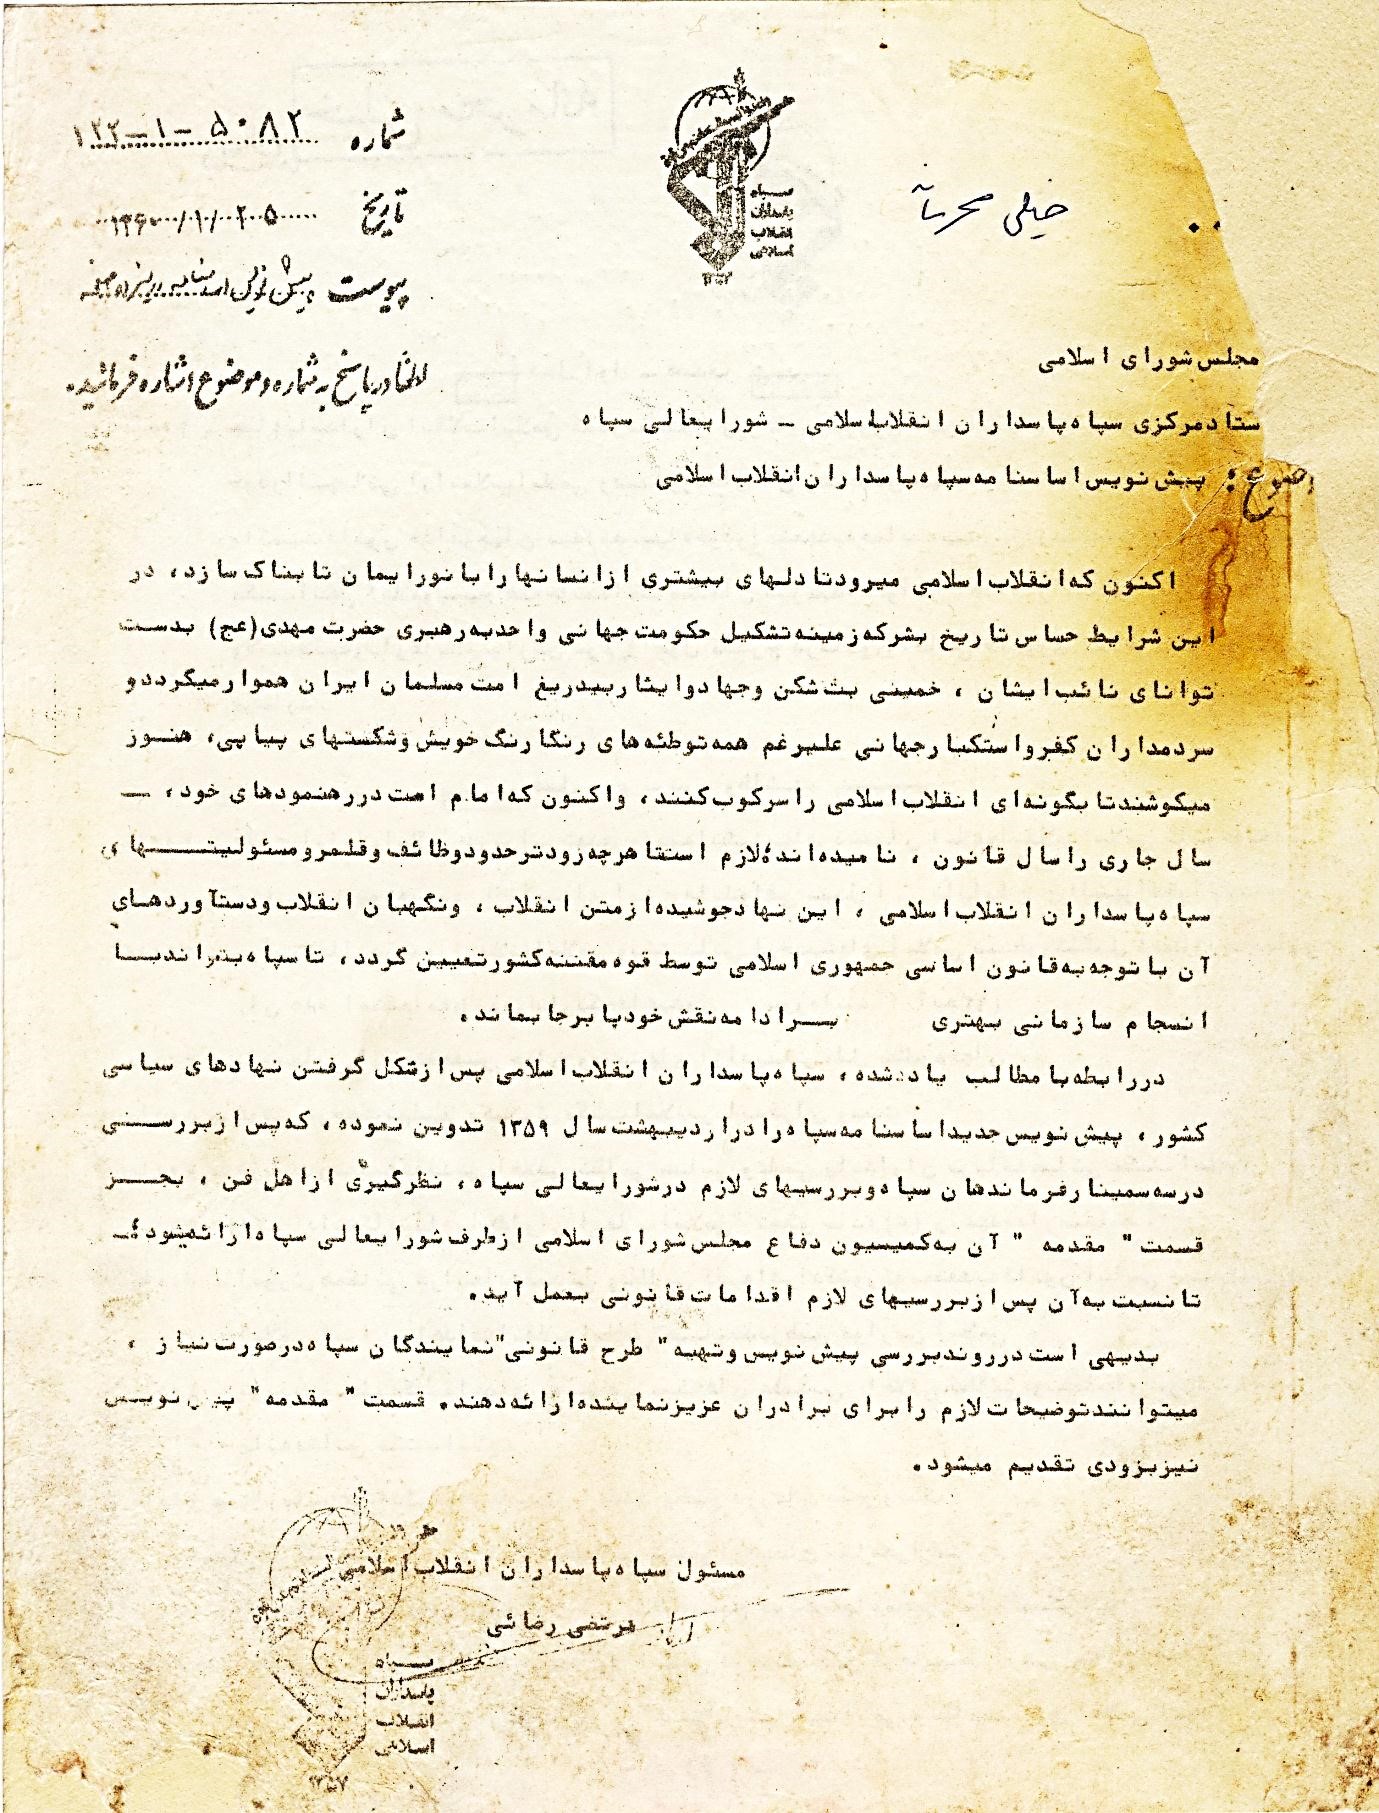 شماره ۱۲۲-۱-۵۰۸۲
تاریخ ۱۳۶۰/۱/۲۵
پیوست پیش نویس اساسنامه
لطفاً در پاسخ به شماره و موضوع اشاره فرمائید.
سپاه
پاسداران
انقلاب
اسلامی
خیلی محرمانه
مجلس شورای اسلامی
ستاد مرکزی سپاه پاسداران انقلاب اسلامی ـ شورایعالی سپاه
موضوع : پیش نویس اساسنامه سپاه پاسداران انقلاب اسلامی
اکنون که انقلاب اسلامی میرود تا دلهای بیشتری از انسانها را با نور ایمان تابناک سازد، در
این شرایط حساس تاریخ بشر که زمینه تشکیل حکومت جهانی واحد به رهبری حضرت مهدی (عج) بدست
توانای نائب ایشان ، خمینی بت شکن و جهاد و ایثار بیدریغ امت مسلمان ایران هموار میگردد و
سردمداران کفر و استکبار جهانی علیرغم همه توطئه های رنگارنگ خویش و شکستهای پیاپی، هنوز
میکوشند تا بگونه ای انقلاب اسلامی را سرکوب کنند، و اکنون که امام امت در رهنمودهای خود، ـ
سال جاری را سال قانون ، نامیده اند، لازم است تا هر چه زودتر حدود وظائف و قلمرو مسئولیتهای
سپاه پاسداران انقلاب اسلامی ، این نهاد جوشیده از متن انقلاب ، و نگهبان انقلاب و دستآوردهای
آن با توجه به قانون اساسی جمهوری اسلامی توسط قوه مقننه کشور تعیین گردد، تا سپاه بتواند با
انسجام سازمانی بهتری بر ادامه نقش خود پابرجا بماند.
در رابطه با مطالب یاد شده ، سپاه پاسداران انقلاب اسلامی پس از شکل گرفتن نهادهای سیاسی
کشور ، پیش نویس جدید اساسنامه سپاه را در اردیبهشت سال ۱۳۵۹ تدوین نموده ، که پس از بررسی
در سه سمینار فرماندهان سپاه و بررسیهای لازم در شورایعالی سپاه ، نظرگیری از اهل فن ، بجز
قسمت " مقدمه " آن به کمیسیون دفاع مجلس شورای اسلامی از طرف شورایعالی سپاه ارائه میشود، ـ
تا نسبت به آن پس از بررسیهای لازم اقدامات قانونی بعمل آید.
بدیهی است در روند بررسی پیش نویس و تهیه " طرح قانونی" نمایندگان سپاه در صورت نیاز ،
میتوانند توضیحات لازم را برای برادران عزیز نماینده ارائه دهند. قسمت " مقدمه " پیش نویس
نیز بزودی تقدیم میشود.
مسئول سپاه پاسداران انقلاب اسلامی
مرتضی رضائی
سپاه
پاسداران
انقلاب
اسلامی
۱۳۵۷